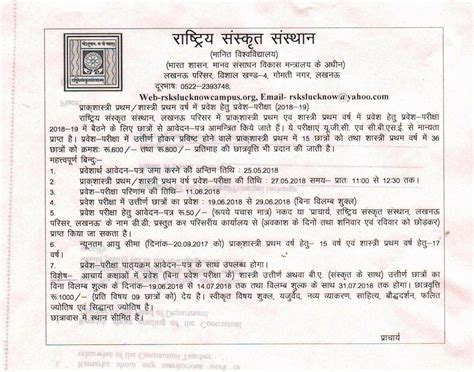 राष्ट्रिय संस्कृत संस्थान
(मानित विश्वविद्यालय)
(भारत शासन, मानव संसाधन विकास मन्त्रालय के अधीन)
लखनऊ परिसर, विशाल खण्ड–4, गोमती नगर, लखनऊ
दूरभाषः 0522–2393748,
Web-rskslucknowcampus.org, Email- rskslucknow@yahoo.com
प्राक्शास्त्री प्रथम/शास्त्री प्रथम वर्ष में प्रवेश हेतु प्रवेश–परीक्षा (2018–19)
राष्ट्रिय संस्कृत संस्थान, लखनऊ परिसर में प्राक्शास्त्री प्रथम/शास्त्री प्रथम वर्ष में प्रवेश हेतु प्रवेश–परीक्षा
2018–19 में बैठने के लिए छात्रों से आवेदन–पत्र आमन्त्रित किये जाते हैं। ये परीक्षाए यू.जी.सी. एवं सी.बी.एस.ई. से मान्यता
प्राप्त है। प्रवेश–परीक्षा में उत्तीर्ण होकर प्रविष्ट होने वाले छात्रों में प्राक्शास्त्री प्रथम में 15 छात्रों को तथा शास्त्री प्रथम वर्ष में 36
छात्रों को क्रमशः रू.600/– तथा रू.800/– प्रतिमाह की छात्रवृत्ति भी प्रदान की जाती है।
महत्त्वपूर्ण बिन्दुः–
1. प्रवेशार्थ आवेदन–पत्र जमा करने की अन्तिम तिथि : 25.05.2018
2. प्राक्शास्त्री प्रथम/शास्त्री प्रथम वर्ष प्रवेश–परीक्षा की तिथि : 27.05.2018 समय– प्रातः 11:00 से 12:30 तक।
3. प्रवेश–परीक्षा परिणाम की तिथि : 11.06.2018
4. प्रवेश परीक्षा में उत्तीर्ण छात्रों का प्रवेश : 19.06.2018 से 29.06.2018 (बिना विलम्ब शुल्क)
5. प्रवेश परीक्षा हेतु आवेदन–पत्र रू.50/– (रूपये पचास मात्र) नकद या 'प्राचार्य, राष्ट्रिय संस्कृत संस्थान, लखनऊ
परिसर, लखनऊ' के नाम डी.डी. प्रस्तुत कर परिसरीय कार्यालय से (अवकाश के दिनो तथा शनिवार एवं रविवार को छोड़कर)
प्राप्त किया जा सकता है।
6. न्यूनतम आयु सीमा (दिनांक–20.09.2017 को) प्राक्शास्त्री प्रथम वर्ष हेतु– 15 वर्ष एवं शास्त्री प्रथम वर्ष हेतु–17
वर्ष।
7. प्रवेश–परीक्षा पाठ्यक्रम आवेदन–पत्र के साथ उपलब्ध होगा।
विशेष– आचार्य कक्षाओं में प्रवेश (बिना प्रवेश परीक्षा के) शास्त्री उत्तीर्ण अथवा बी.ए. (संस्कृत के साथ) उत्तीर्ण छात्रों का
बिना विलम्ब शुल्क के दिनांक–19.06.2018 से 14.07.2018 तक तथा विलम्ब शुल्क के साथ 31.07.2018 तक होगा। छात्रवृत्ति
रू.1000/– (प्रति विषय 09 छात्रों को) देय है। स्वीकृत विषय शुक्ल, यजुर्वेद, नव्य व्याकरण, साहित्य, बौद्धदर्शन, फलित
ज्योतिष एवं सिद्धान्त ज्योतिष है।
छात्रावास में स्थान सीमित है।
प्राचार्य